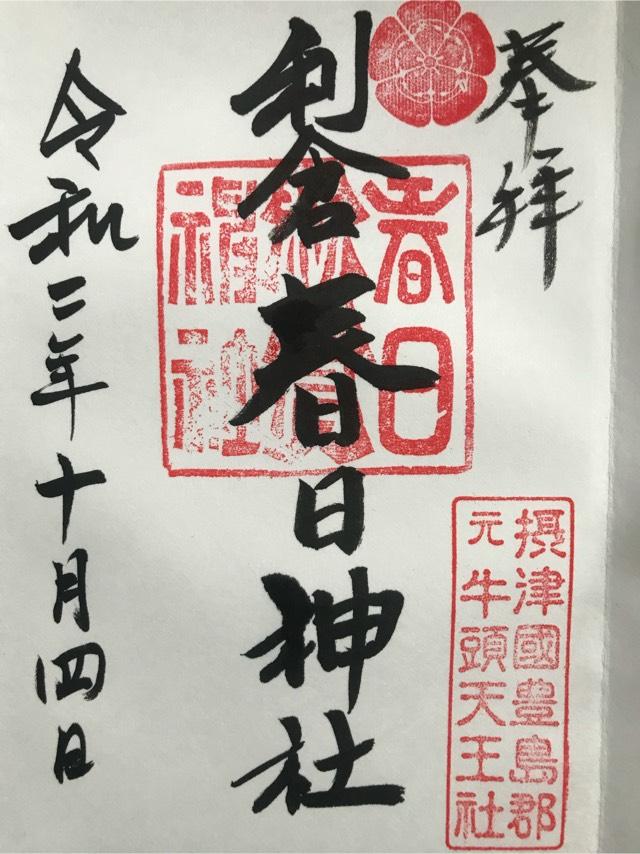 奉拝
摂津國豊島郡
元牛頭天王社
利倉春日神社
春日
神社
令和二年十月四日